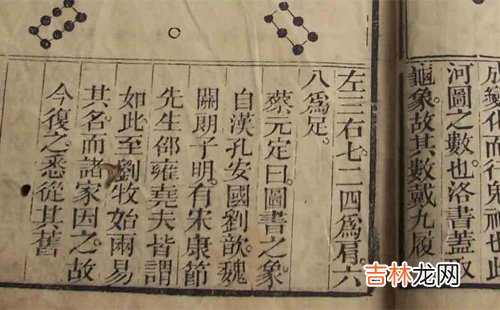 成變化而行鬼神也此
河圖之數也洛書蓋取
龜象故其數戴九履
左三右七二四爲肩。六
八爲足。
蔡元定曰圖書之象
自漢孔安國劉歆魏
關朗子明。有宋康節
先生邵雍堯夫皆謂
如此至劉牧始兩易
其名而諸家因之故
今復之悉從其舊
吉林龙网